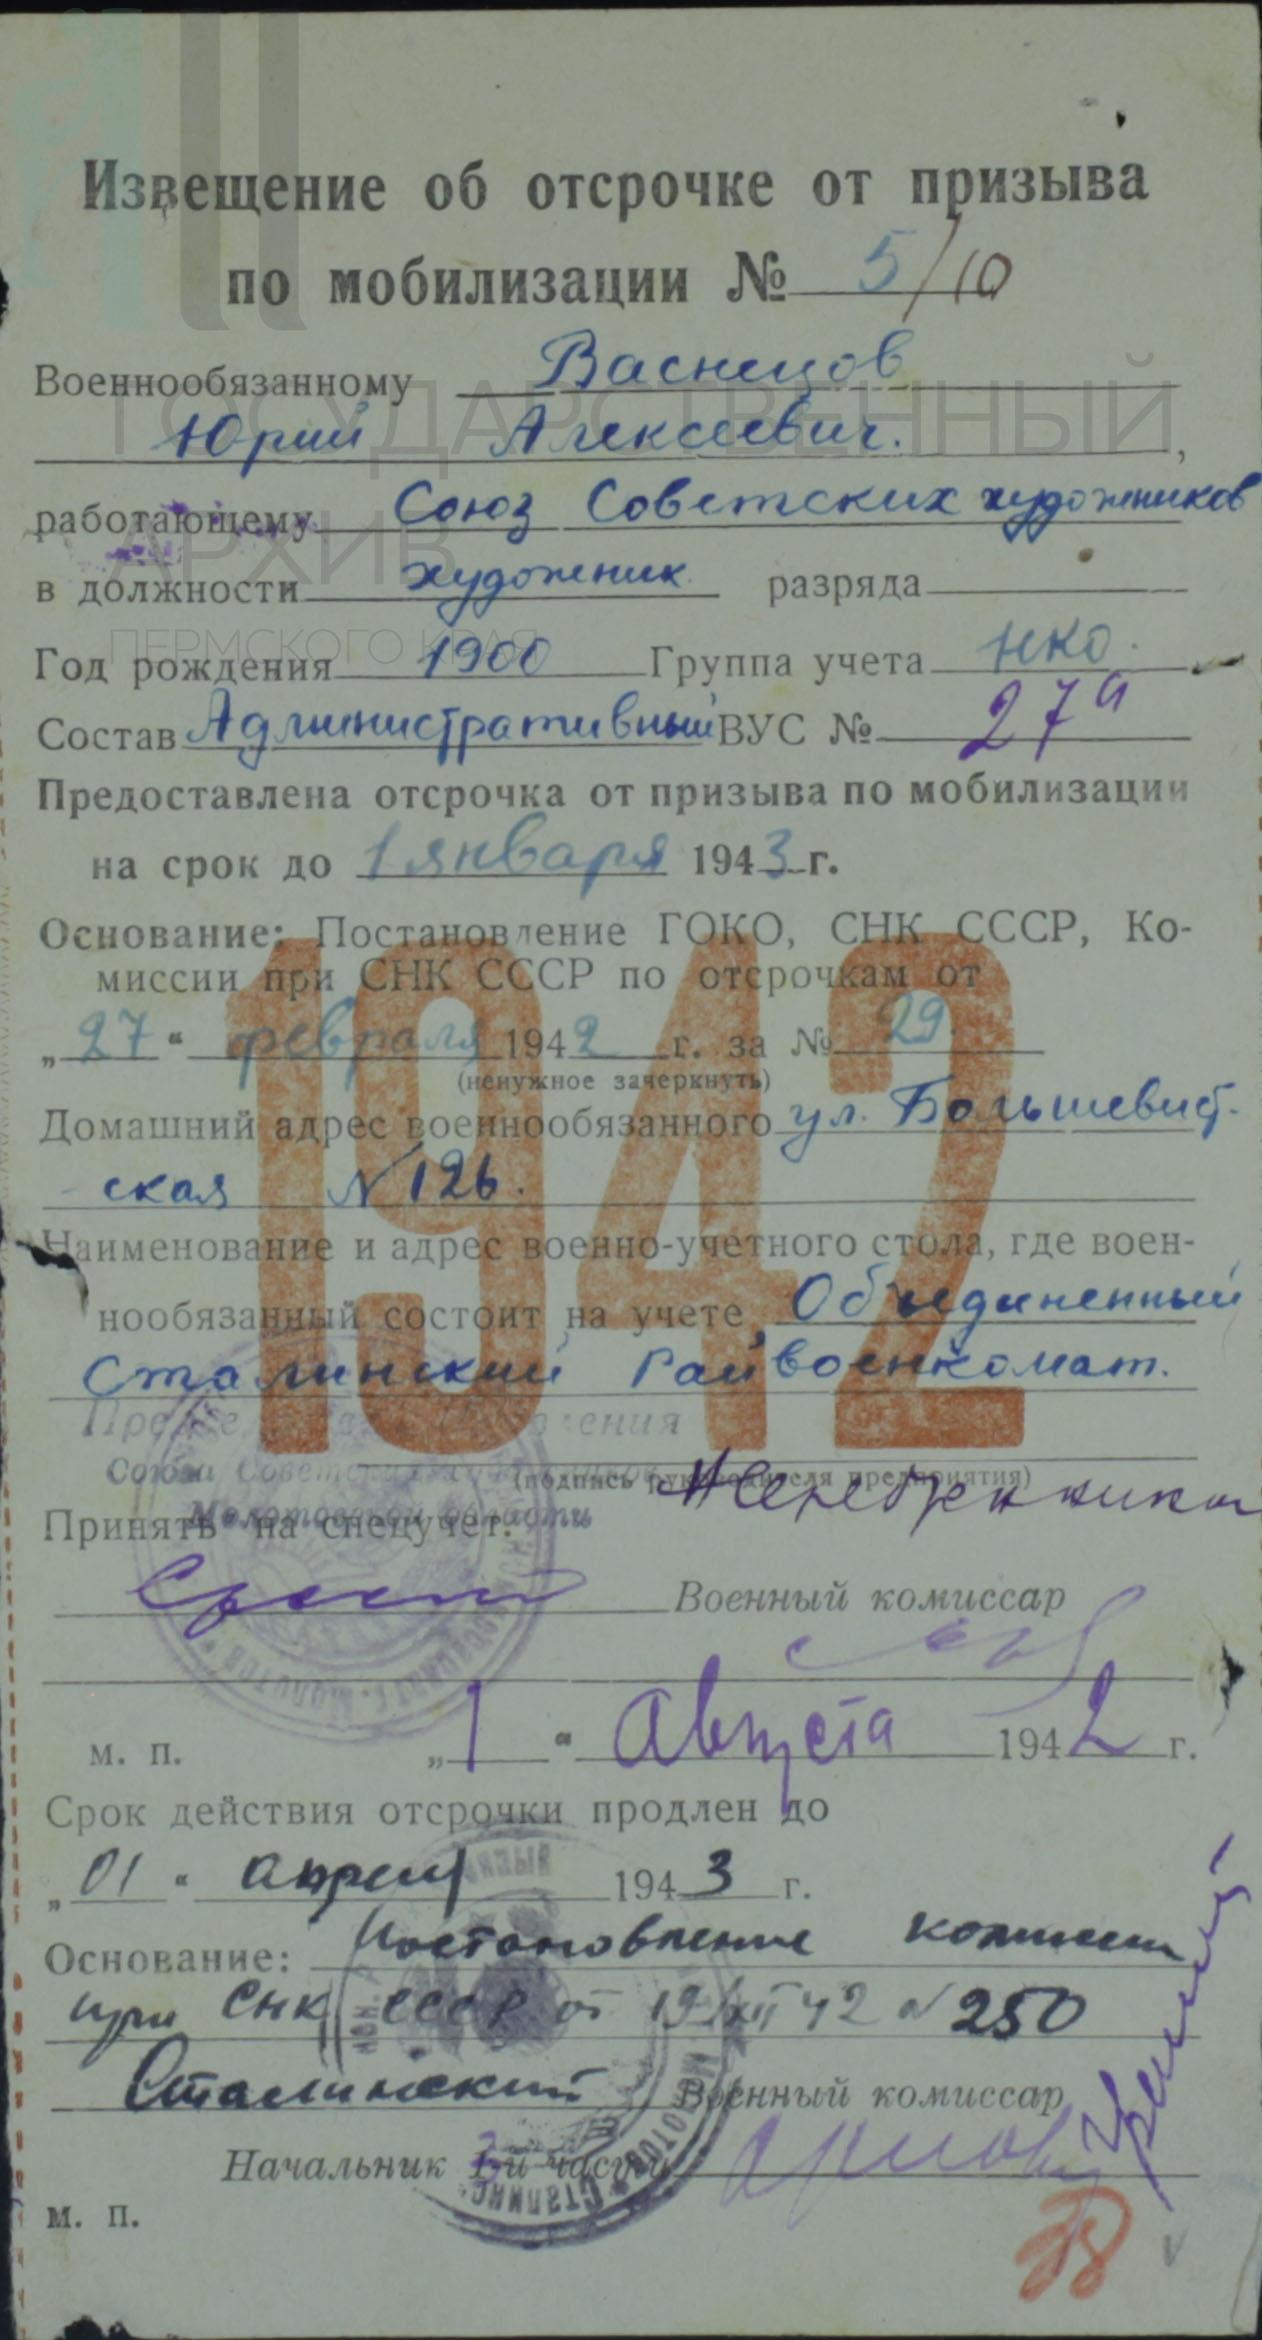 Извещение об отсрочке от призыва
по мобилизации № 5/10
Военнообязанному Васнецов
Юрий Алексеевич.,
работающему Союз Советских художников
в должности художник разряда
Год рождения 1900 Группа учета НКО.
Состав Административный ВУС № 27а
Предоставлена отсрочка от призыва по мобилизации
на срок до 1 января 1943 г.
Основание: Постановление ГОКО, СНК СССР, Ко-
миссии при СНК СССР по отсрочкам от
„27“ февраля 1942 г. за № 29.
(ненужное зачеркнуть)
Домашний адрес военнообязанного ул. Большевист-
ская N 126.
Наименование и адрес военно-учетного стола, где воен-
нообязанный состоит на учете Объединенный
Сталинский Райвоенкомат.
Союза Советских
(подпись руководителя предприятия)
Молотовской области
Принять на спецучет.
Военный комиссар
м. п. „1“ Августа 1942 г.
Срок действия отсрочки продлен до
„01“ апреля 1943 г.
Основание: Постановление комиссии
при СНК СССР от 19/XII 42 N 250
Сталинский Военный комиссар
Начальник части
м. п.
1942
ГОСУДАРСТВЕННЫЙ
АРХИВ
ПЕРМСКОГО КРАЯ